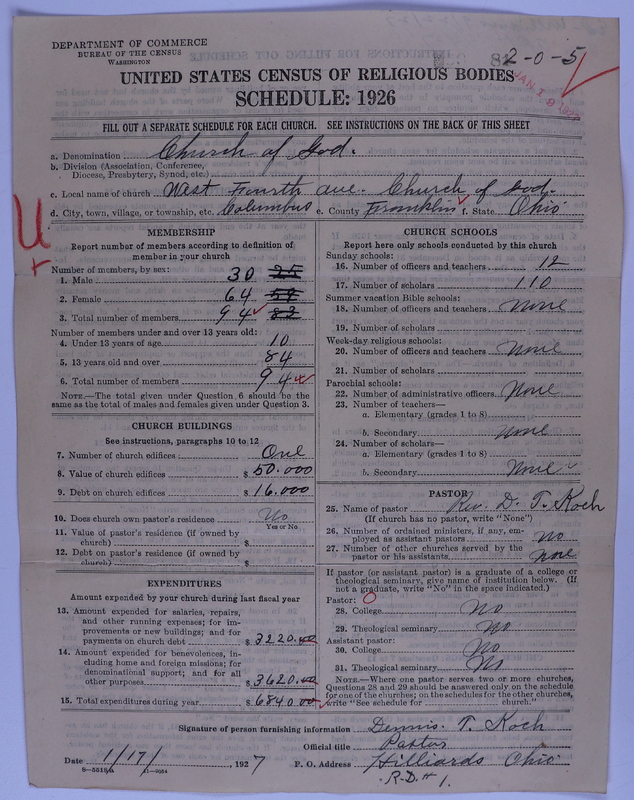 DEPARTMENT OF COMMERCE
BUREAU OF THE CENSUS
WASHINGTON
82-0-5
UNITED STATES CENSUS OF RELIGIOUS BODIES
SCHEDULE: 1926
FILL OUT A SEPARATE SCHEDULE FOR EACH CHURCH. SEE INSTRUCTIONS ON THE BACK OF THIS SHEET
a. Denomination Church of God.
b. Division (Association, Conference, Diocese, Presbytery, Synod, etc.)
c. Local name of church West Fourth ave. Church of God.
d. City, town, village, or township, etc. Columbus e. County Franklin f. State Ohio
MEMBERSHIP
Report number of members according to definition of member in your church
Number of members, by sex:
1. Male 30 25
2. Female 64
3. Total number of members 94
Number of members under and over 13 years old:
4. Under 13 years of age 10
5. 13 years old and over 84
6. Total number of members 94
NOTE.—The total given under Question 6 should be the same as the total of males and females given under Question 3.
CHURCH BUILDINGS
See instructions, paragraphs 10 to 12
7. Number of church edifices One
8. Value of church edifices $ 50.000
9. Debt on church edifices $ 16.000
10. Does church own pastor's residence No
Yes or No
11. Value of pastor's residence (if owned by church) $
12. Debt on pastor's residence (if owned by church) $
EXPENDITURES
Amount expended by your church during last fiscal year
13. Amount expended for salaries, repairs, and other running expenses; for improvements or new buildings; and for payments on church debt $ 3220.00
14. Amount expended for benevolences, including home and foreign missions; for denominational support; and for all other purposes $ 3620.00
15. Total expenditures during year $ 6840.00
CHURCH SCHOOLS
Report here only schools conducted by this church
Sunday schools:
16. Number of officers and teachers 12
17. Number of scholars 110
Summer vacation Bible schools:
18. Number of officers and teachers None
19. Number of scholars
Week-day religious schools:
20. Number of officers and teachers None
21. Number of scholars
Parochial schools:
22. Number of administrative officers None
23. Number of teachers—
a. Elementary (grades 1 to 8)
b. Secondary None
24. Number of scholars—
a. Elementary (grades 1 to 8)
b. Secondary None
PASTOR
25. Name of pastor Rev. D. T. Koch
(If church has no pastor, write "None")
26. Number of ordained ministers, if any, employed as assistant pastors No
27. Number of other churches served by the pastor or his assistants None
If pastor (or assistant pastor) is a graduate of a college or theological seminary, give name of institution below. (If not a graduate, write "No" in the space indicated.)
Pastor:
28. College No
29. Theological seminary No
Assistant pastor:
30. College No
31. Theological seminary No
NOTE.—Where one pastor serves two or more churches, Questions 28 and 29 should be answered only on the schedule for one of the churches; on the schedules for the other churches, write "See schedule for church."
Signature of person furnishing information Dennis T. Koch
Official title Pastor
Date 1/17/, 1927 P. O. Address Hilliards Ohio
R.D. # 1.